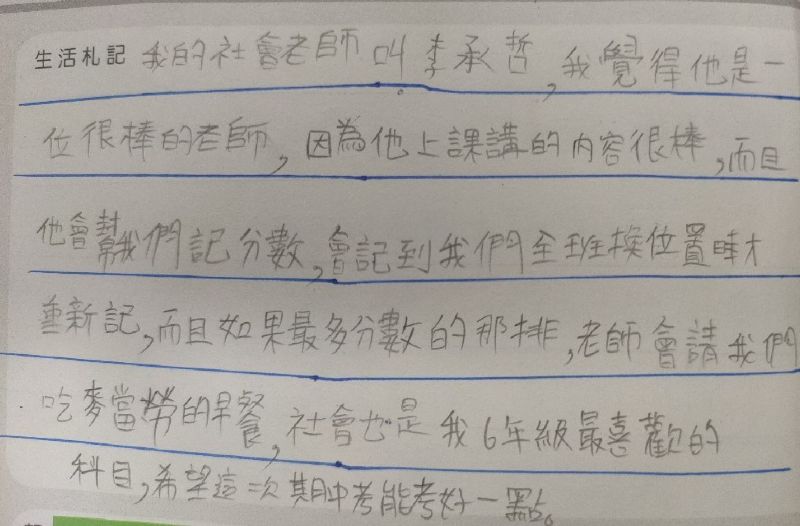 生活札記 我的社會老師叫李承哲,我覺得他是一
位很棒的老師,因為他上課講的內容很棒,而且
他會幫我們記分數,會記到我們全班換位置時才
重新記,而且如果最多分數的那排,老師會請我們
吃麥當勞的早餐,社會也是我6年級最喜歡的
科目,希望這次期中考能考好一點。